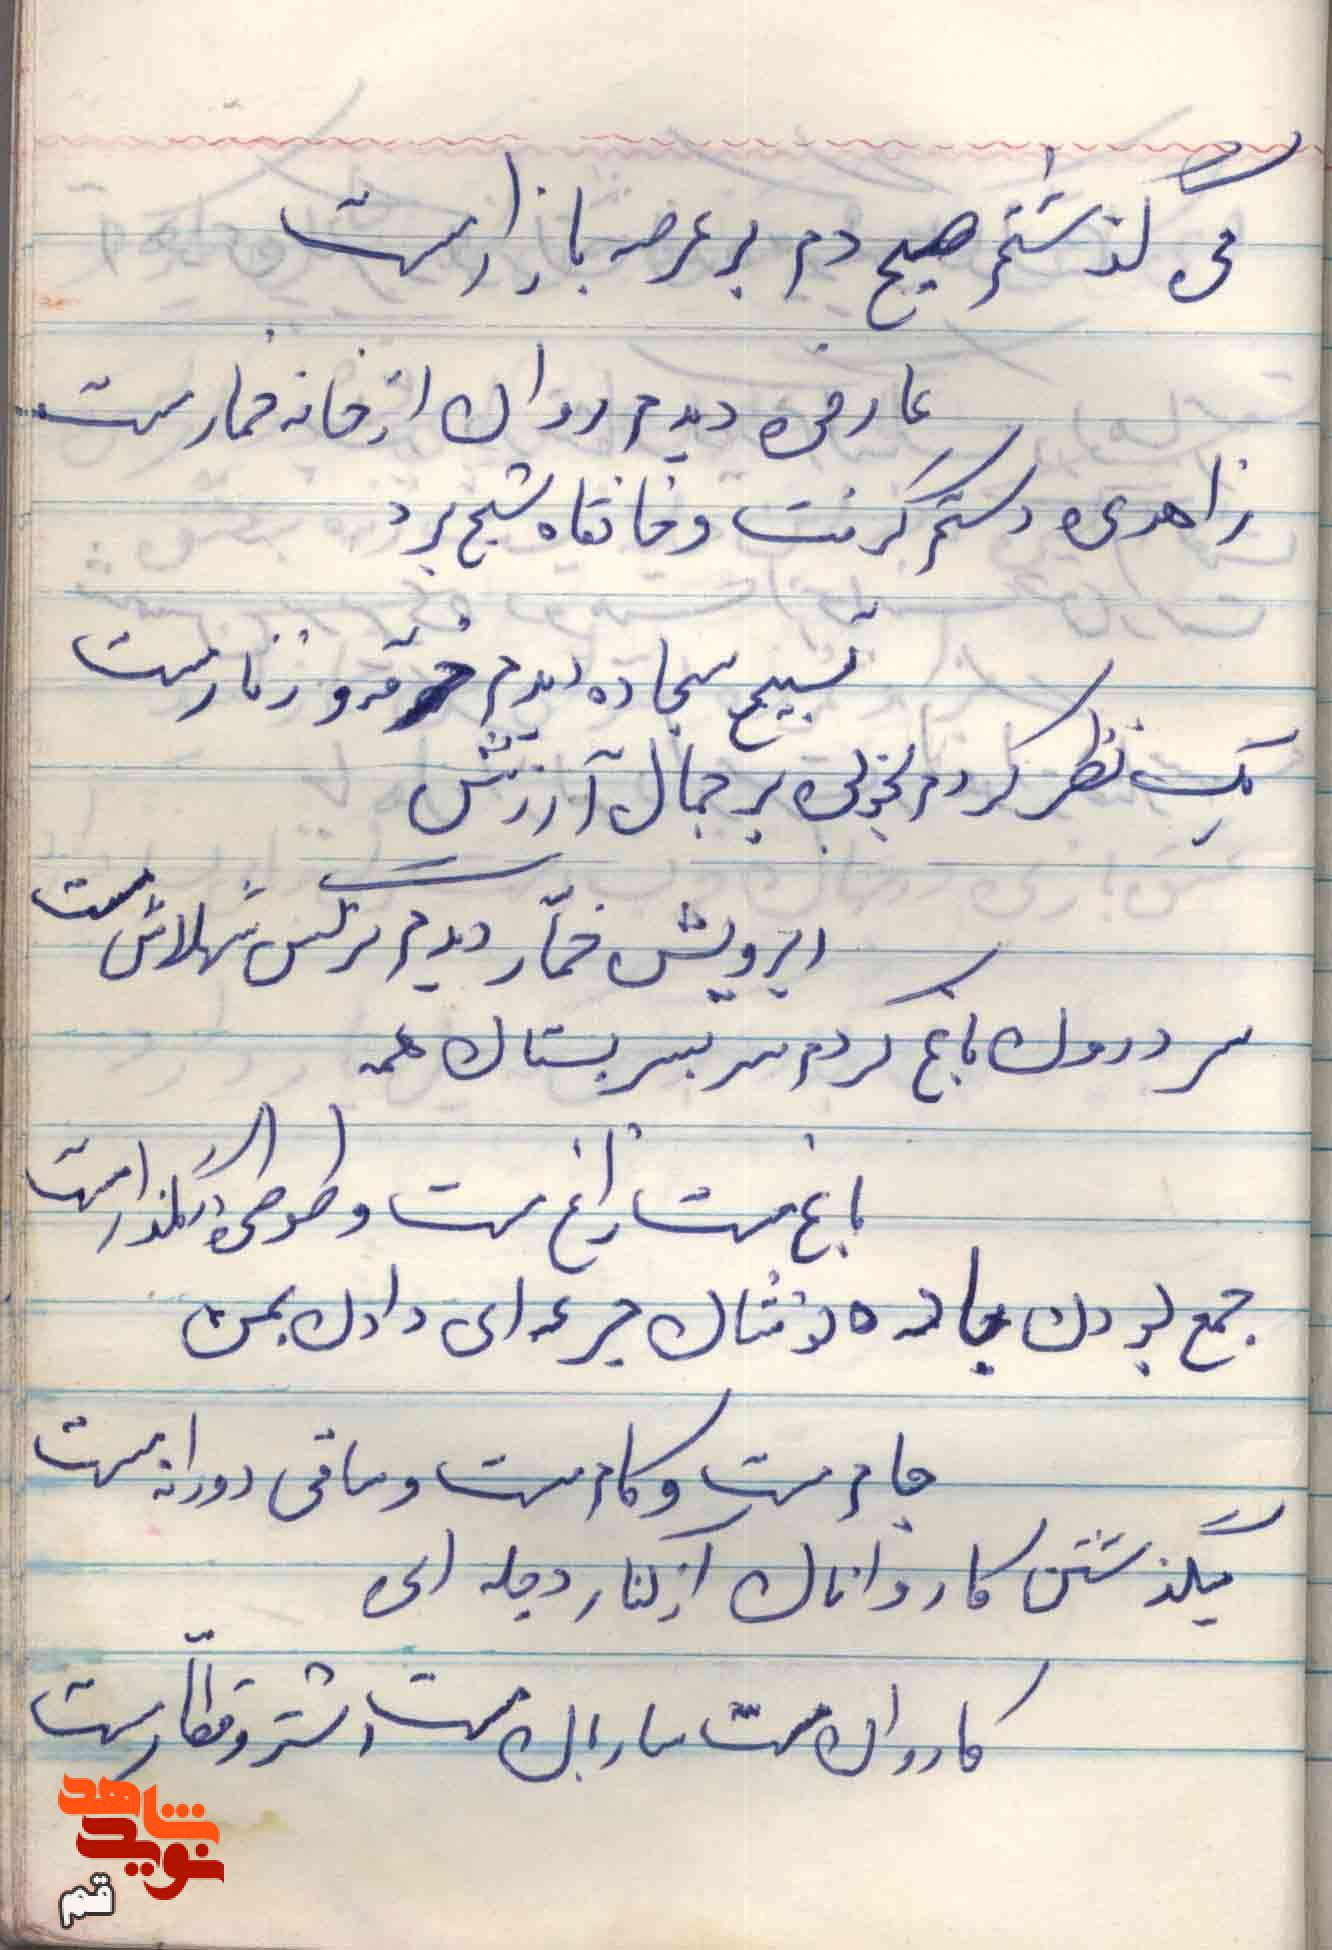 می گذشتم صبح دم بر عرصه بازار مست
عارفی دیدم روان از خانه خمار مست
زاهدی دستم گرفت و خانقاه شیخ برد
تسبیح سجاده دیدم خرقه و زنار مست
یک نظر کردم بخوبی بر جمال آرزش
ابرویش خمّار دیدم نرگس شهلاش مست
سر درون باغ کردم سر بسر بستان همه
باغ مست زاغ مست و طوطی در گلذار مست
جمع بودن باده نوشان جرعه ای دادن بمن
جام مست و کام مست و ساقی دورانه مست
میگذشتن کاروانان از کنار دجله ای
کاروان مست ساربان مست اشتر و قطار مست
شاهد
نوید
قم